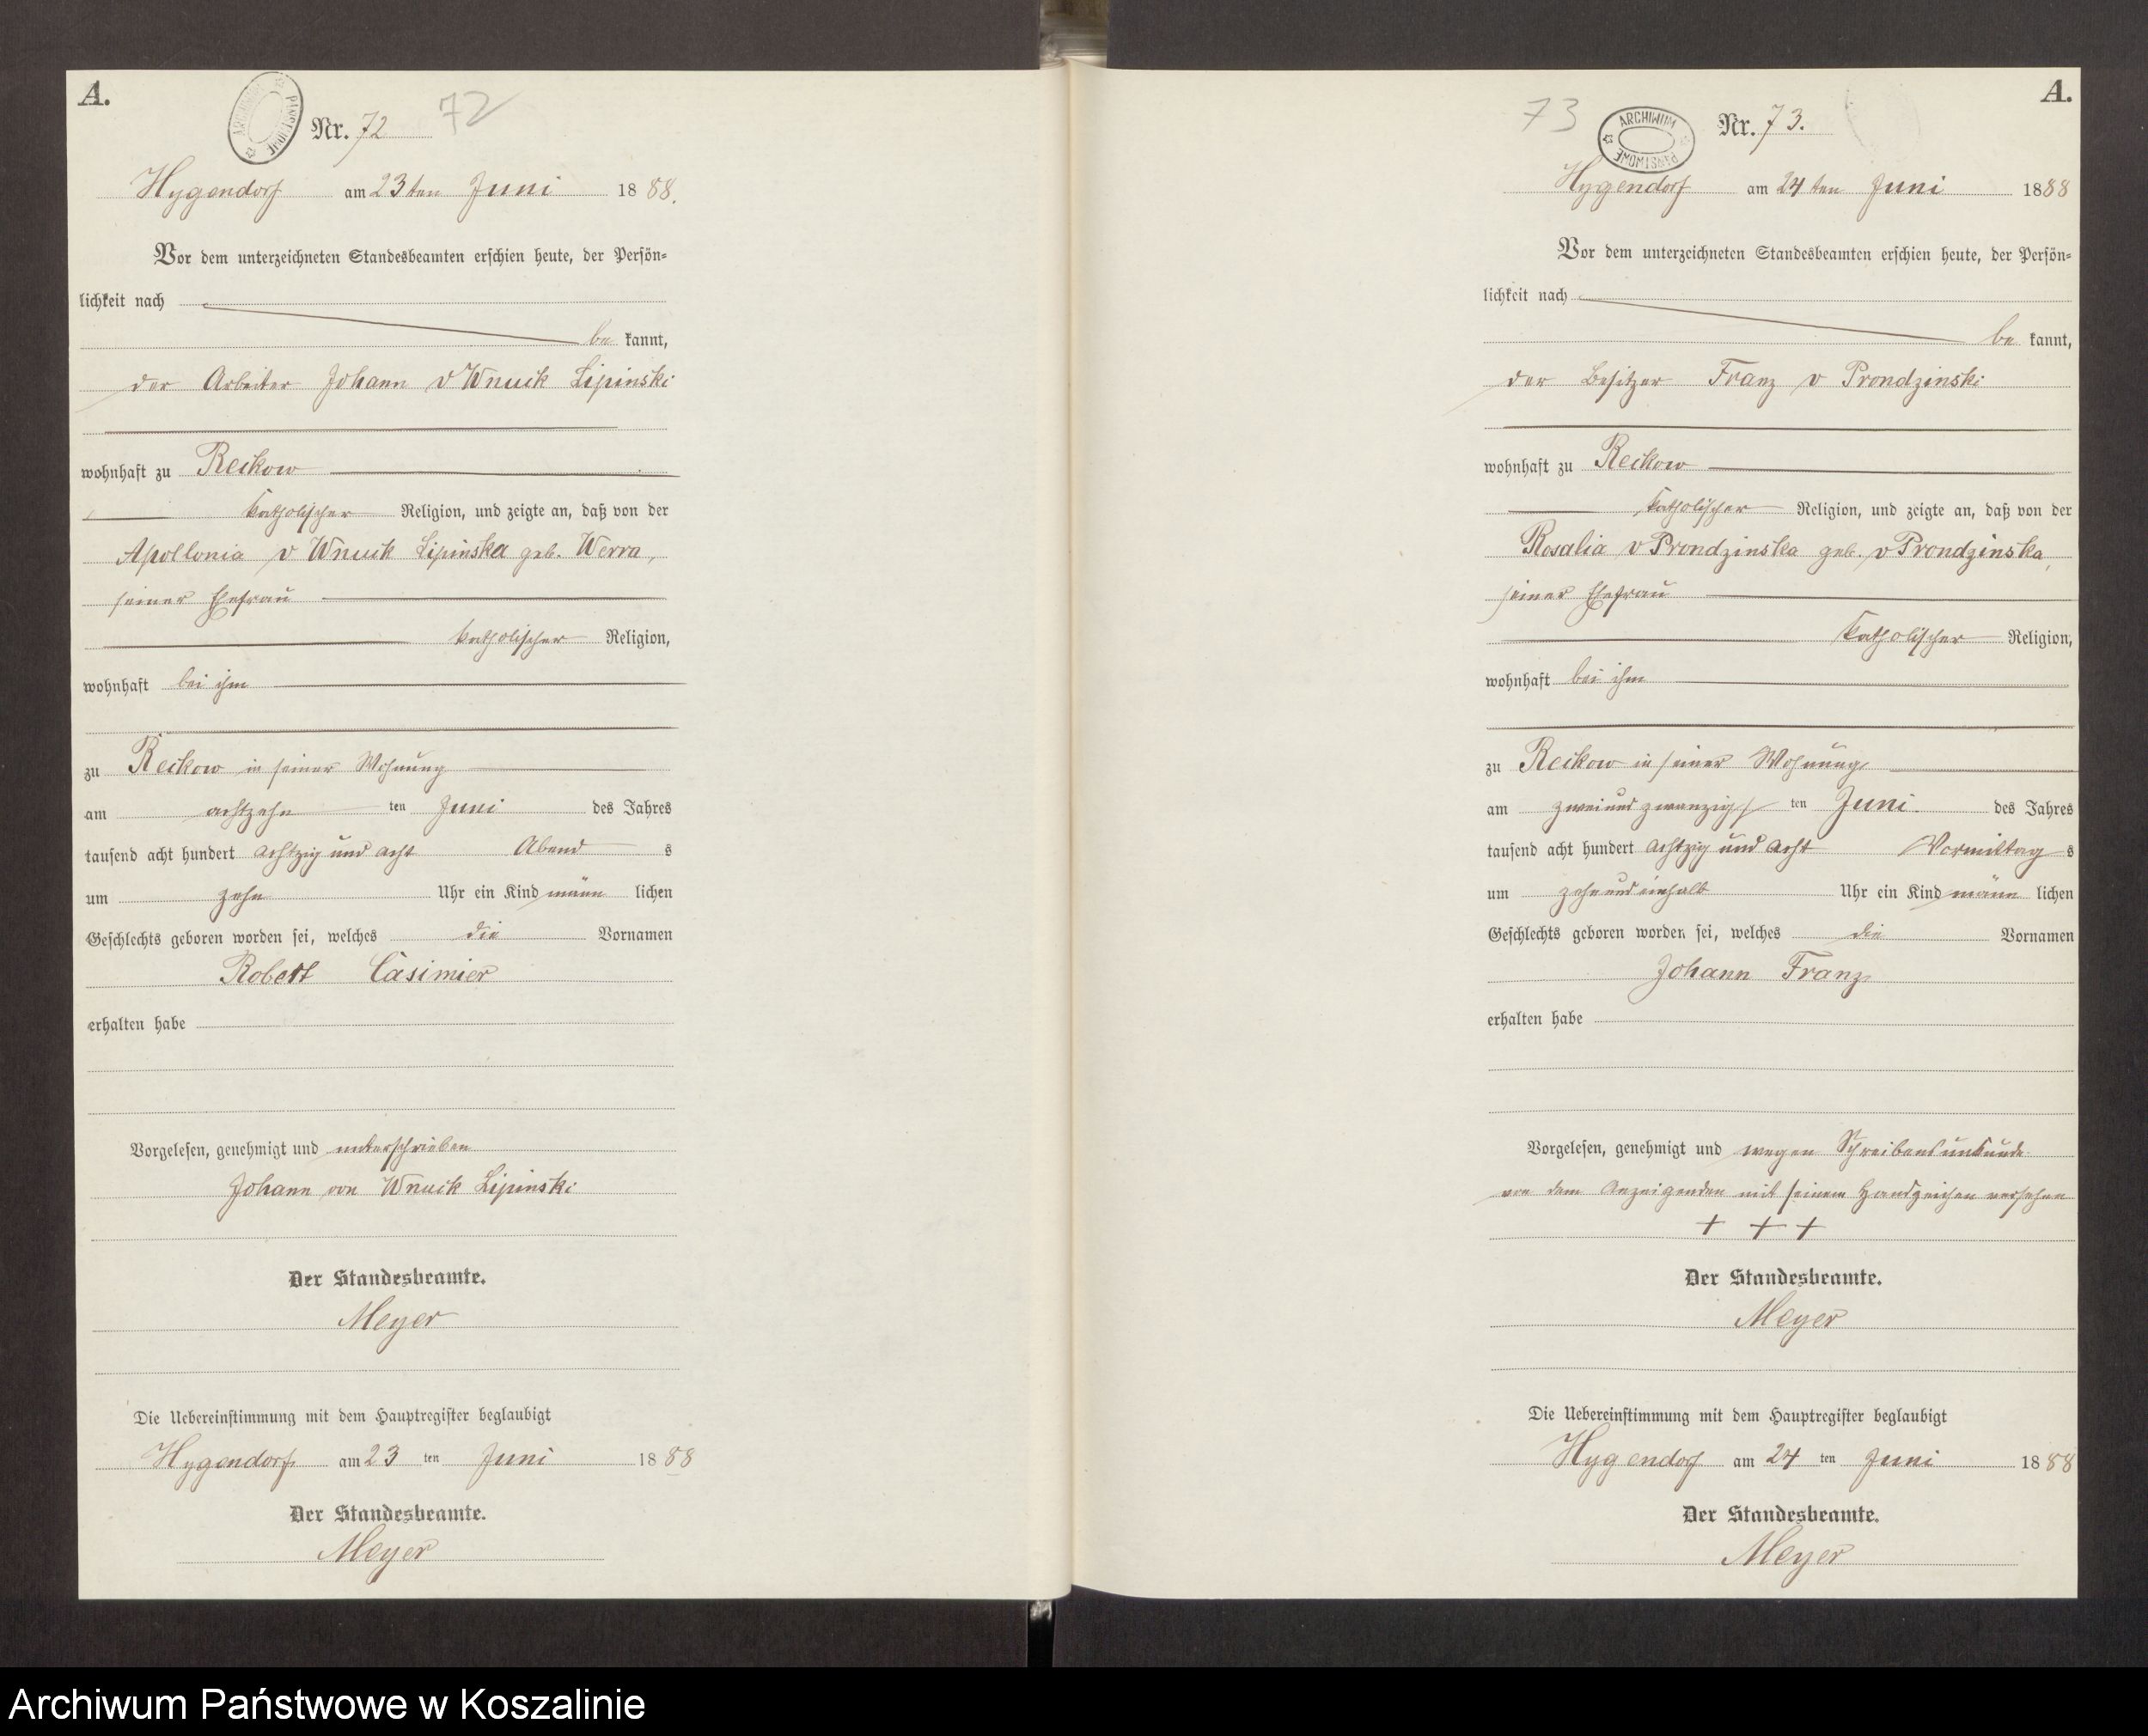 A.
ARCHIWUM PAŃSTWOWE
Nr. 72 72
Hygendorf am 23ten Juni 1888.
Vor dem unterzeichneten Standesbeamten erschien heute, der Persön-
lichkeit nach
be kannt,
der Arbeiter Johann v Wnuck Lipinski
wohnhaft zu Reckow
katholischer Religion, und zeigte an, daß von der
Apollonia v Wnuck Lipinska geb. Werra,
seiner Ehefrau
katholischer Religion,
wohnhaft bei ihm
zu Reckow in seiner Wohnung
am achtzehn ten Juni des Jahres
tausend acht hundert achtzig und acht Abend s
um zehn Uhr ein Kind männ lichen
Geschlechts geboren worden sei, welches die Vornamen
Robert Casimier
erhalten habe
Vorgelesen, genehmigt und unterschrieben
Johann von Wnuck Lipinski
Der Standesbeamte.
Meyer
Die Uebereinstimmung mit dem Hauptregister beglaubigt
Hygendorf am 23 ten Juni 1888
Der Standesbeamte.
Meyer
A.
73 ARCHIWUM PAŃSTWOWE Nr. 73.
Hygendorf am 24ten Juni 1888
Vor dem unterzeichneten Standesbeamten erschien heute, der Persön-
lichkeit nach
be kannt,
der Besitzer Franz v Prondzinski
wohnhaft zu Reckow
katholischer Religion, und zeigte an, daß von der
Rosalia v Prondzinska geb. v Prondzinska,
seiner Ehefrau
katholischer Religion,
wohnhaft bei ihm
zu Reckow in seiner Wohnung
am zweiundzwanzigs ten Juni des Jahres
tausend acht hundert achtzig und acht Vormittag s
um zehn und einhalb Uhr ein Kind männ lichen
Geschlechts geboren worden sei, welches die Vornamen
Johann Franz
erhalten habe
Vorgelesen, genehmigt und wegen Schreibensunkunde
von dem Anzeigenden mit seinem Handzeichen versehen
+ + +
Der Standesbeamte.
Meyer
Die Uebereinstimmung mit dem Hauptregister beglaubigt
Hygendorf am 24 ten Juni 1888
Der Standesbeamte.
Meyer
Archiwum Państwowe w Koszalinie